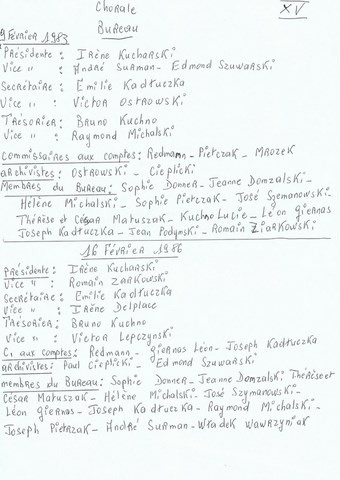 Chorale
XV
Bureau
9 Février 1983
Présidente : Irène Kucharski
Vice " : André Surman - Edmond Szuwarski
Secrétaire : Emilie Kadłuczka
Vice " : Victor Ostrowski
Trésorier : Bruno Kuchno
Vice " : Raymond Michalski
Commissaires aux comptes : Redmann - Pietczak - Mrozek
archivistes : Ostrowski - Cieplicki
Membres du Bureau : Sophie Donner - Jeanne Domzalski -
Hélène Michalski - Sophie Pietczak - José Szymanowski -
Thérèse et César Matuszak - Kuchno Lucie - Léon Giernas
Joseph Kadłuczka - Jean Podymski - Romain Ziarkowski
16 Février 1986
Présidente : Irène Kucharski
Vice " : Romain Zarkowski
Secrétaire : Emilie Kadłuczka
Vice " : Irène Delplace
Trésorier : Bruno Kuchno
Vice " : Victor Lepczynski
C. aux comptes : Redmann - Giernas Léon - Joseph Kadłuczka
archivistes : Paul Cieplicki - Edmond Szuwarski
membres du Bureau : Sophie Donner - Jeanne Domzalski Thérèse et
César Matuszak - Hélène Michalski - José Szymanowski -
Léon Giernas - Joseph Kadłuczka - Raymond Michalski -
Joseph Pietrzak - André Surman - Władek Wawrzyniak